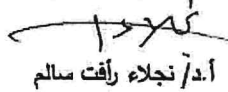 أ.د/ نجلاء رأفت سالم